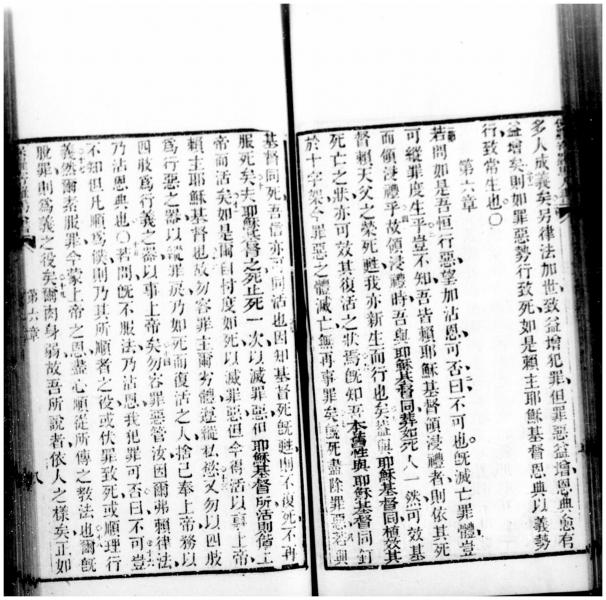 多人成義矣另律法加世致益增犯罪但罪惡益增恩典愈有
益增矣則如罪惡勢行致死如是賴主耶穌基督恩典以義勢
行致常生也〇
第六章
若問如是吾恒行惡望加沾恩可否曰不可也旣滅亡罪體豈
可縱罪度生乎豈不知吾皆賴耶穌基督領浸禮者則依其死
而領浸禮乎故領浸禮時吾與耶穌基督同葬如死人一然可效基
督賴天父之榮死甦我亦新生而行也矣蓋與耶穌基督同植效其
死亡之狀亦可效其復活之狀焉旣知吾本舊性與耶穌基督同釘
於十字架令罪惡之體滅亡無再事罪矣旣死盡除罪惡若與
基督同死吾信亦同活也因知基督死旣甦則不復死不再
服死矣夫耶穌基督之死止死一次以滅罪惡但耶穌基督所活則偕上
帝而活矣如是爾自忖度如死以滅罪惡但今得活以事上帝
賴主耶穌基督也故勿容罪主爾努體遵縱私慾又勿以四肢
爲行惡之器以縱罪戾乃如死而復活之人捨己奉上帝務以
四肢爲行義之器以事上帝矣勿容罪惡管汝因爾弗賴律法
乃沾恩典也〇若問旣不服法乃沾恩我犯罪可否曰不可豈
不知但凡順爲僕則乃其所順者之役或伏罪致死或順理行
義然爾素服罪今蒙上帝之恩盡心順從所傳之教法也爾旣
脫罪則爲義之役矣爾肉身弱故吾所說者依人之樣矣正如
第六章
八